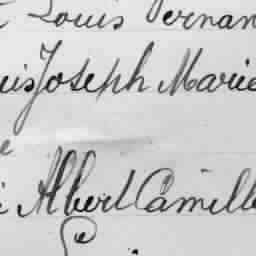 Louis Fernan
uis Joseph Marie
e
i Albert Camille